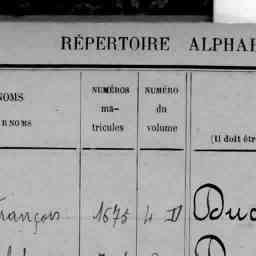 RÉPERTOIRE ALPHA
NOMS
NUMÉROS
ma-
tricules
NUMÉRO
du
volume
(Il doit êtr
François 1675 4 II Duc